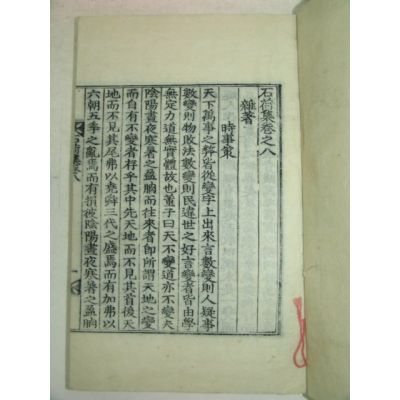 石荷集卷之八
雜著
時事策
天下萬事之弊皆從變字上出來言數變則人疑事
數變則物敗法數變則民違世之好言變者皆由學
無定力道無實體故也董子曰天不變道亦不變夫
陰陽晝夜寒暑之盈朒而往來者即所謂天地之變
而自有不變者存乎其中先天地而不見其首後天
地而不見其尾弗以堯舜三代之盛焉而有加弗以
六朝五季之亂焉而有損彼陰陽晝夜寒暑之盈朒